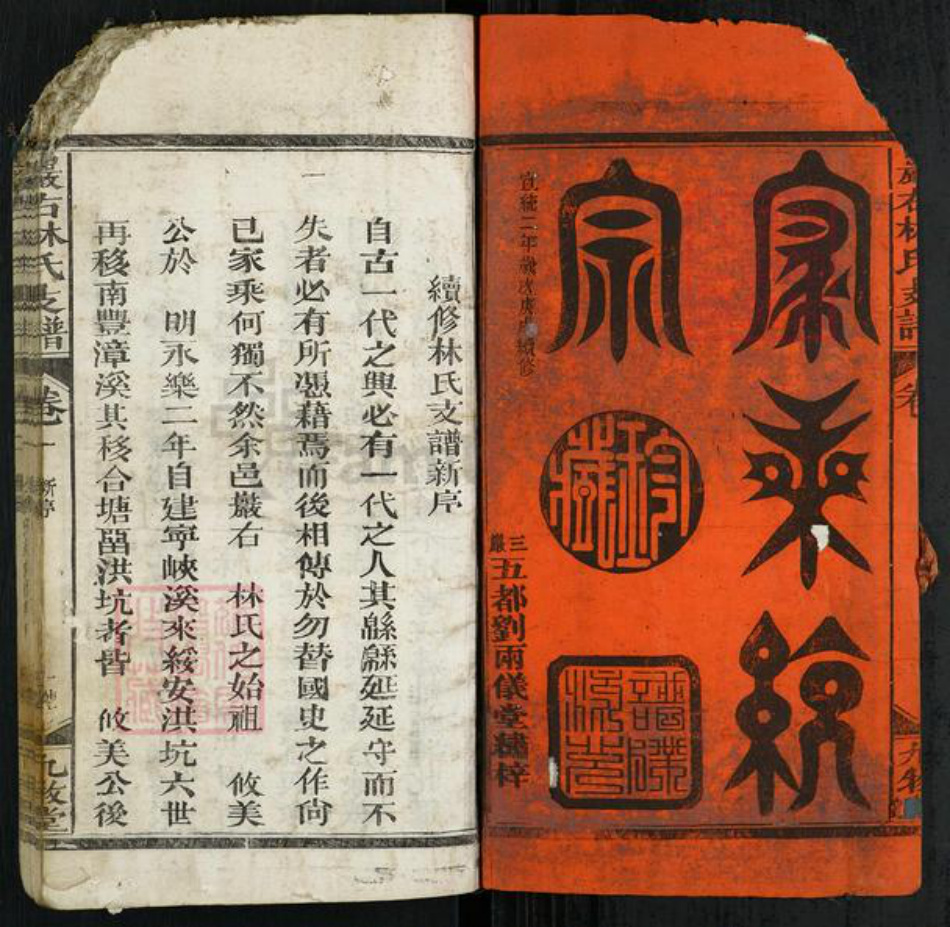 家乘統
宗
宣統二年歲次庚戌續修
珍藏
三巖五都劉兩儀堂繡梓
續修林氏支譜新序
自古一代之興必有一代之人其緜緜延延守而不
失者必有所憑藉焉而後相傳於勿替國史之作尙
已家乘何獨不然余邑巖右 林氏之始祖 攸美
公於 明永樂二年自建寧峽溪來綏安洪坑六世
再移南豐漳溪其移合塘畱洪坑者皆 攸美公後
巖右林氏支譜
卷一
新序
九牧堂